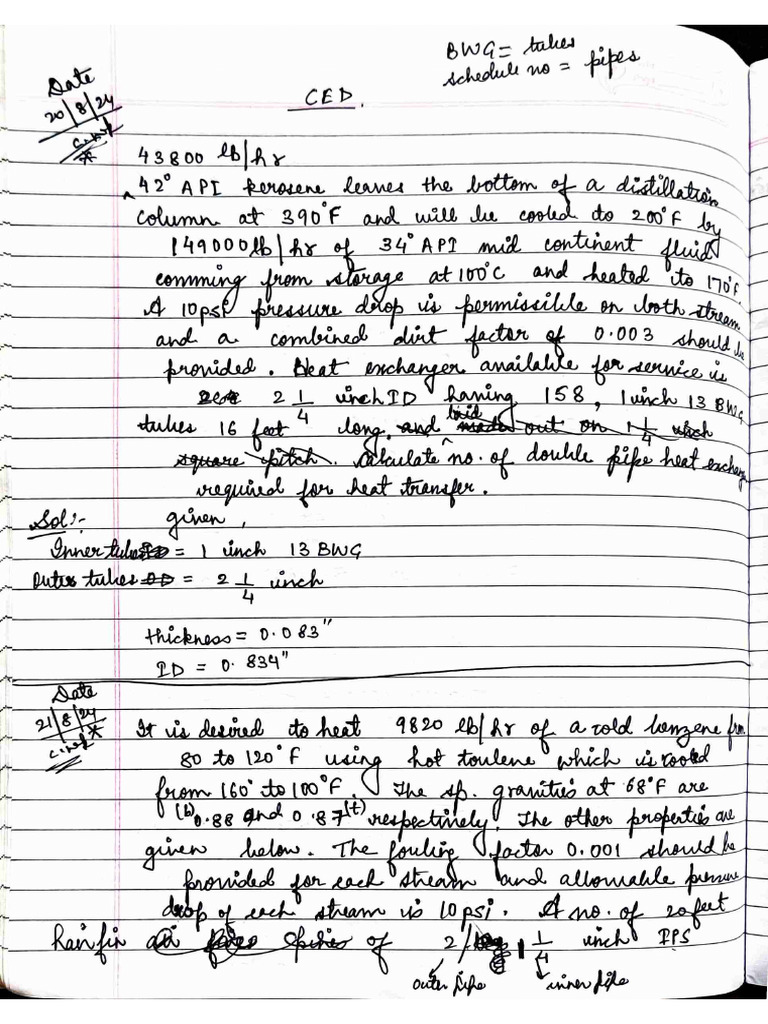 BWG = tubes
schedule no = pipes
Date
20/8/24
CED.
43800 lb/hr
42° API kerosene leaves the bottom of a distillation
column at 390°F and will be cooled to 200°F by
149000 lb/hr of 34° API mid continent fluid
comming from storage at 100°C and heated to 170°F.
A 10psi pressure drop is permissible on both stream
and a combined dirt factor of 0.003 should be
provided. Heat exchanger available for service is
2 1/4 inch ID having 158, 1 inch 13 BWG
tubes 16 feet long, and laid out on 1 1/4 inch
square pitch. Calculate no. of double pipe heat exchang
required for heat transfer.
Sol:- given,
Inner tubes = 1 inch 13 BWG
Outer tubes = 2 1/4 inch
thickness = 0.083"
ID = 0.834"
Date
21/8/24
It is desired to heat 9820 lb/hr of a cold benzene from
80 to 120°F using hot toulene which is cooled
from 160° to 100°F. The sp. granities at 68°F are
(b) 0.88 and 0.87 (t) respectively. The other properties are
given below. The fouling factor 0.001 should be
provided for each stream and allowable pressure
drop of each stream is 10 psi. A no. of 20 feet
hairfin of 2 / 1 1/4 inch IPS
outer pipe inner pipe